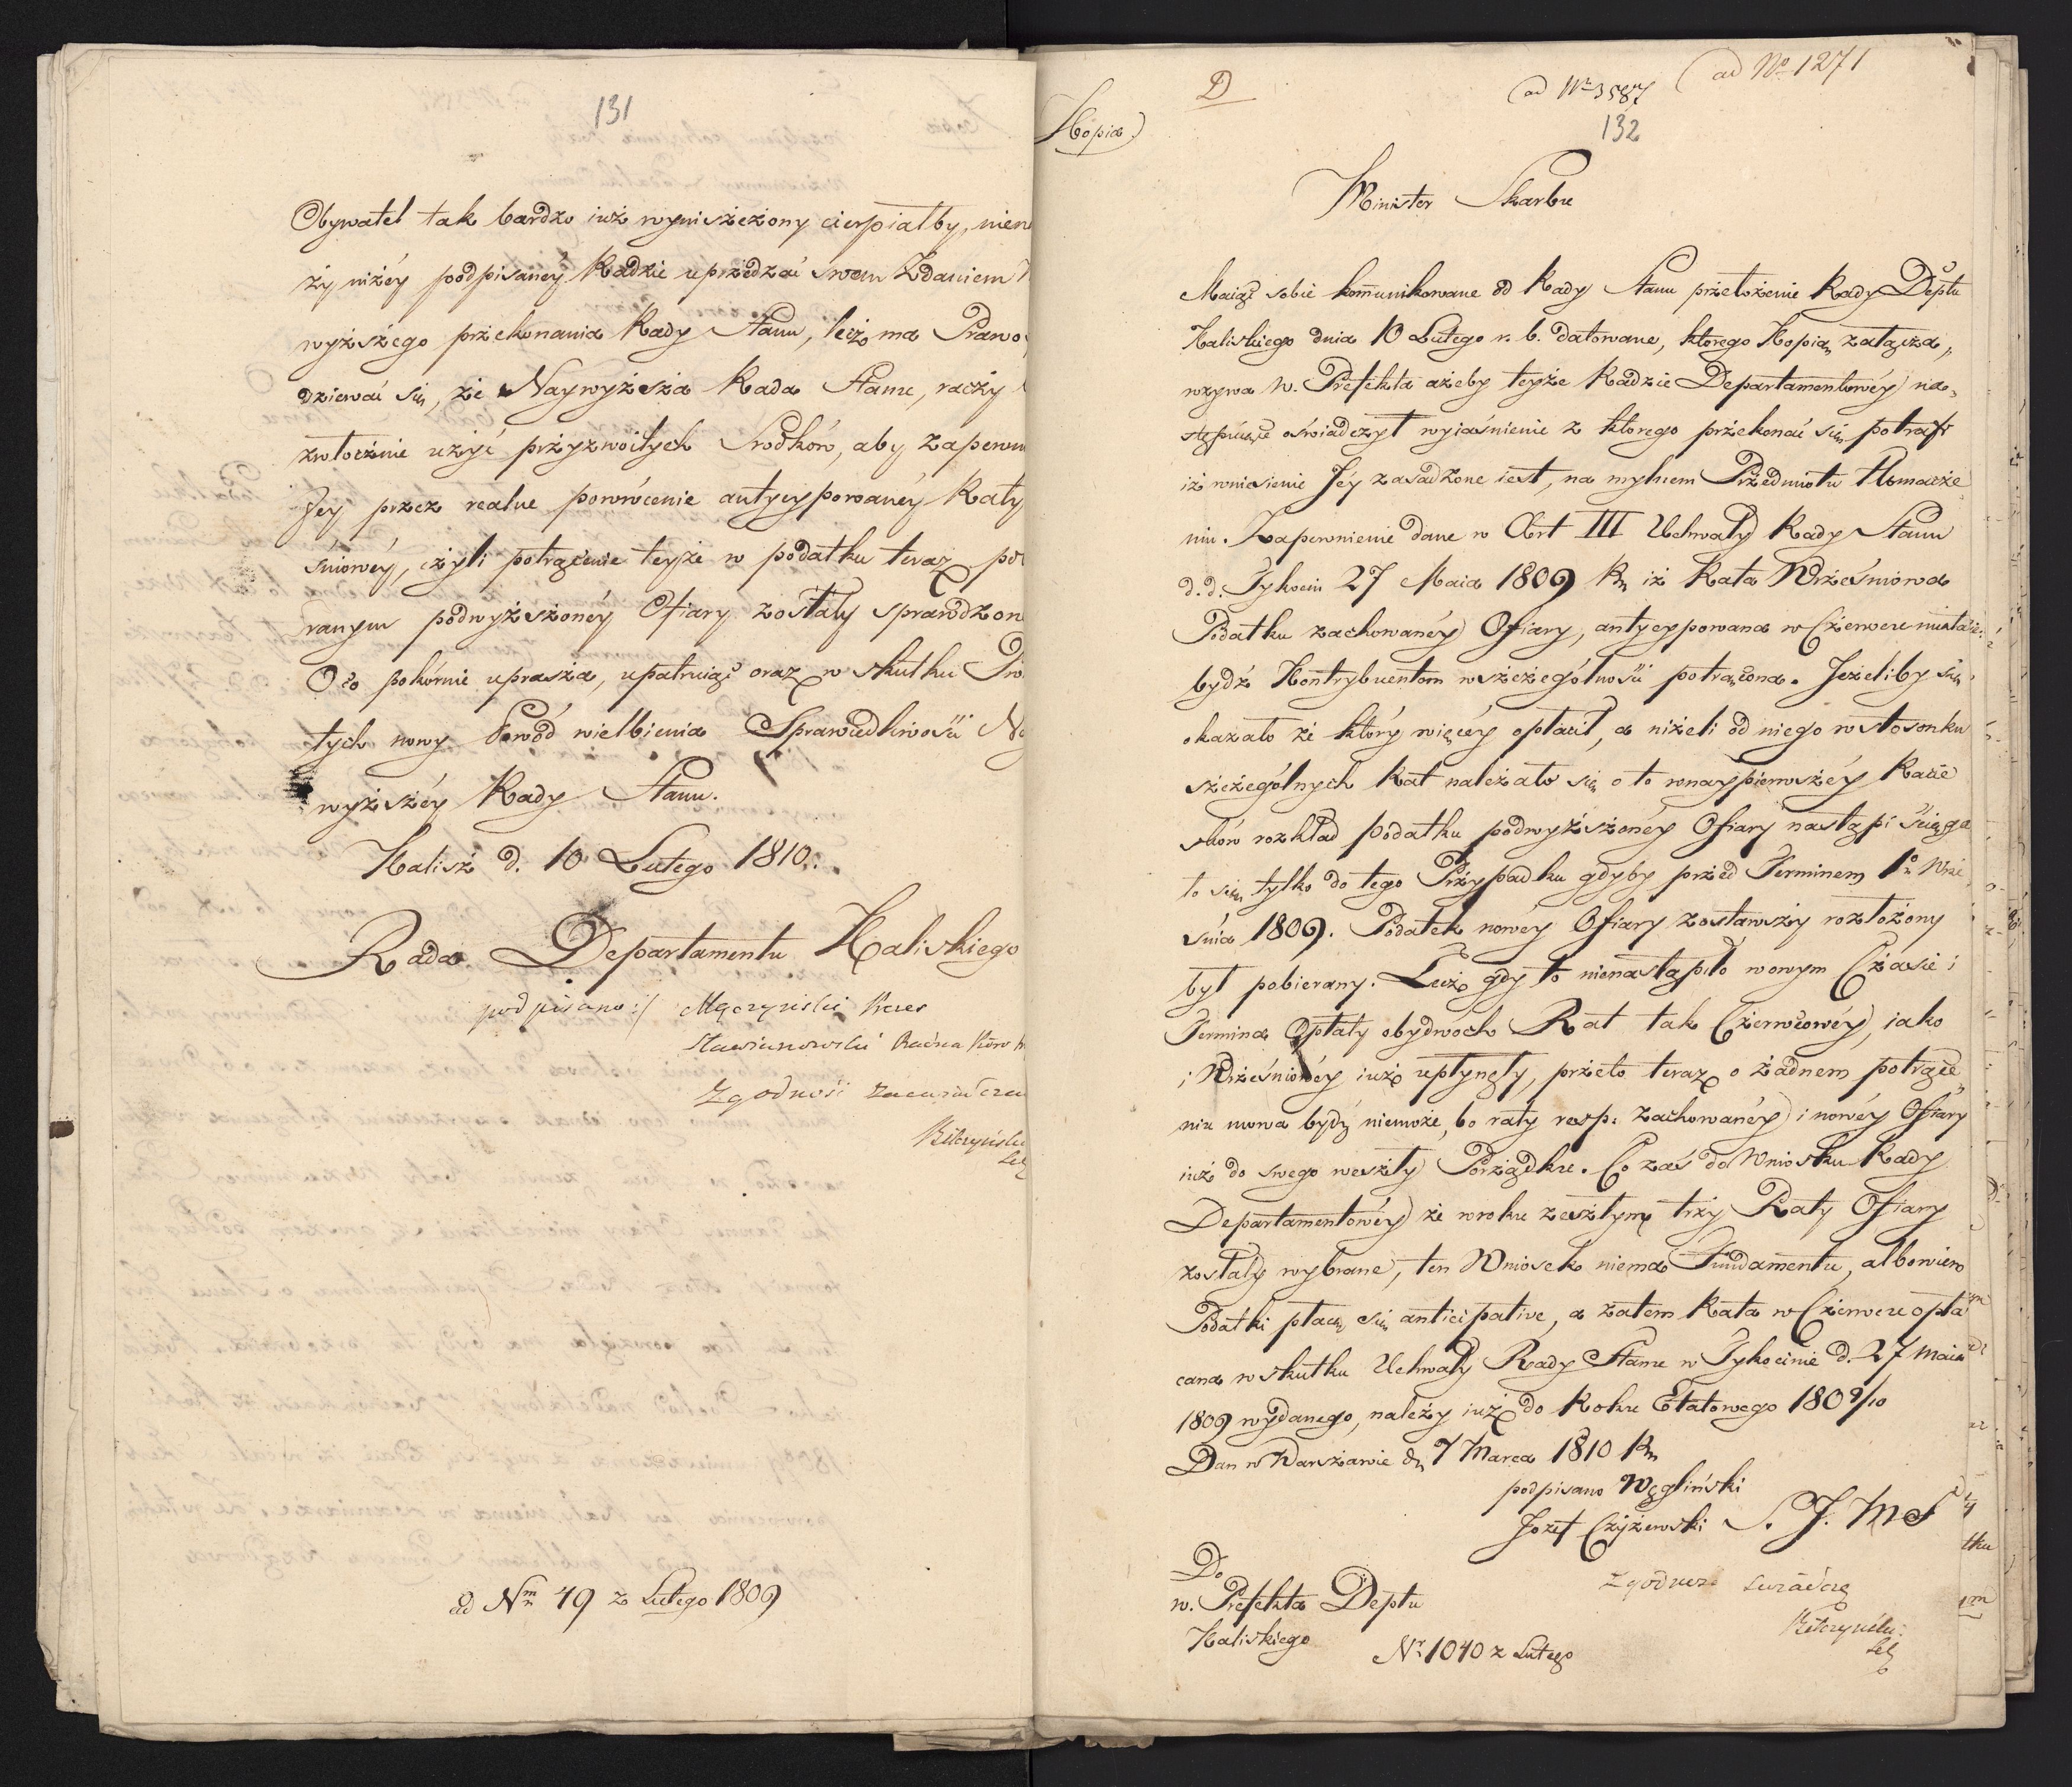 131
Obywatel tak bardzo iuż wyniszczony cierpiałby,
ży niżéy podpisanéy Radzie uprzedzać swem Zdaniem
wyższego przekonania Rady Stanu, lecz ma Prawo
dziewać się, że Naywyższa Rada Stanu, raczy
zwłocznie użyć przyzwoitych Srodków, aby
Jey przez realne powrócenie antycypowanéy Raty
śniowéy, czyli potrącenie teyże w podatku teraz
ranym podwyższonéy Ofiary zostały
O co pokórnie uprasza, upatruiąc oraz w skutku
tych nowy Powód wielbienia Sprawiedliwości
wyższéy Rady Stanu.
Kalisz d. 10 Lutego 1810.
Rada Departamentu Kaliskiego
podpisano:/ Męczyński Prezes
Zgodność
ad Nm 49 z Lutego 1809
D
ad Nr 3587
ad No 1271
132
Kopia)
Minister Skarbu
Maiąc sobie kommunikowane od Rady Stanu przełożenie Rady Deptu
Kaliskiego dnia 10 Lutego r. b. datowane, którego Kopią załącza,
wzywa W. Prefekta ażeby teyże Radzie Departamentowéy na„
stępuiące oświadczył wyiaśnienie z którego przekonać się potrafi
iż wniesienie Jéy zasadzone iest, na mylnem Przedmiotu tłomacze
niu. Zapewnienie dane w Art III Uchwały Rady Stanu
d. d. Tykocin 27 Maia 1809 R. iż Rata Wrześniowa
Podatku zachowanéy Ofiary, antycypowana w Czerwcu miała
bydź Kontrybuentom w szczególności potrącona. Jeżeliby się
okazało że który więcéy opłacił, a niżeli od niego w stosonku
szczególnych Rat należało się o to w naypierwszéy Racie
skoro rozkład podatku podwyższonéy Ofiary nastąpi ściąga
to się tylko do tego Przypadku gdyby przed Terminem 1o Wrze
śnia 1809. Podatek nowéy Ofiary zostawszy rozłożony
był pobierany. Lecz gdy to nienastąpiło w owym Czasie i
Termina Opłaty obydwóch Rat tak Czerwcowéy, iako
i Wrześniowéy iuż upłynęły, przeto teraz o żadnem potrące„
niu mowa bydź niemoże, bo raty resp: zachowanéy i nowéy Ofiary
iuż do swego weszły Porządku. Co zaś do Wniosku Rady
Departamentowéy że w roku zeszłym trzy Raty Ofiary
zostały wybrane, ten Wniosek niema Fundamentu, albowiem
Podatki płacą się anticipative, a zatem Rata w Czerwcu opła
cona w skutku Uchwały Rady Stanu w Tykocinie d. 27 Maia
1809 wydanego, należy iuż do Roku Etatowego 1809/10
Dan w Warszawie d. 7 Marca 1810 R.
podpisano Węgliński
Jozef Czyżewski S. J. M S
Do
W. Prefekta Deptu
Kaliskiego
Nr 1040 z Lutego